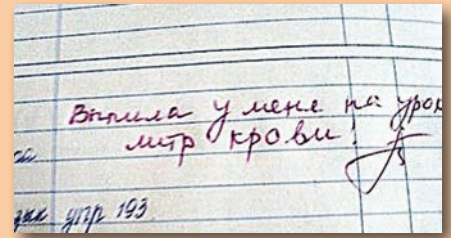 Выпила у мене на урок
литр крови!
упр 193